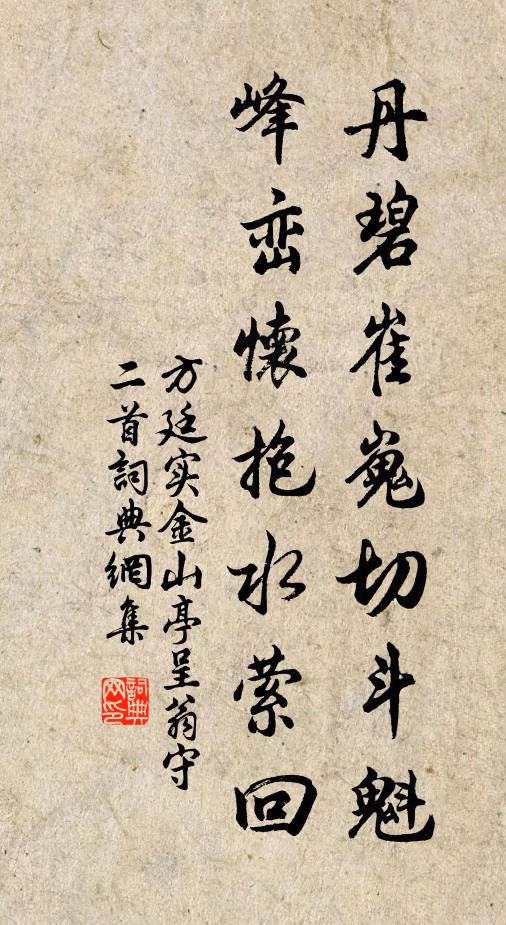 丹碧崔嵬切斗魁
峰峦懷抱水萦回
方廷实金山亭呈翁守
二首詞典網集
詞典網印